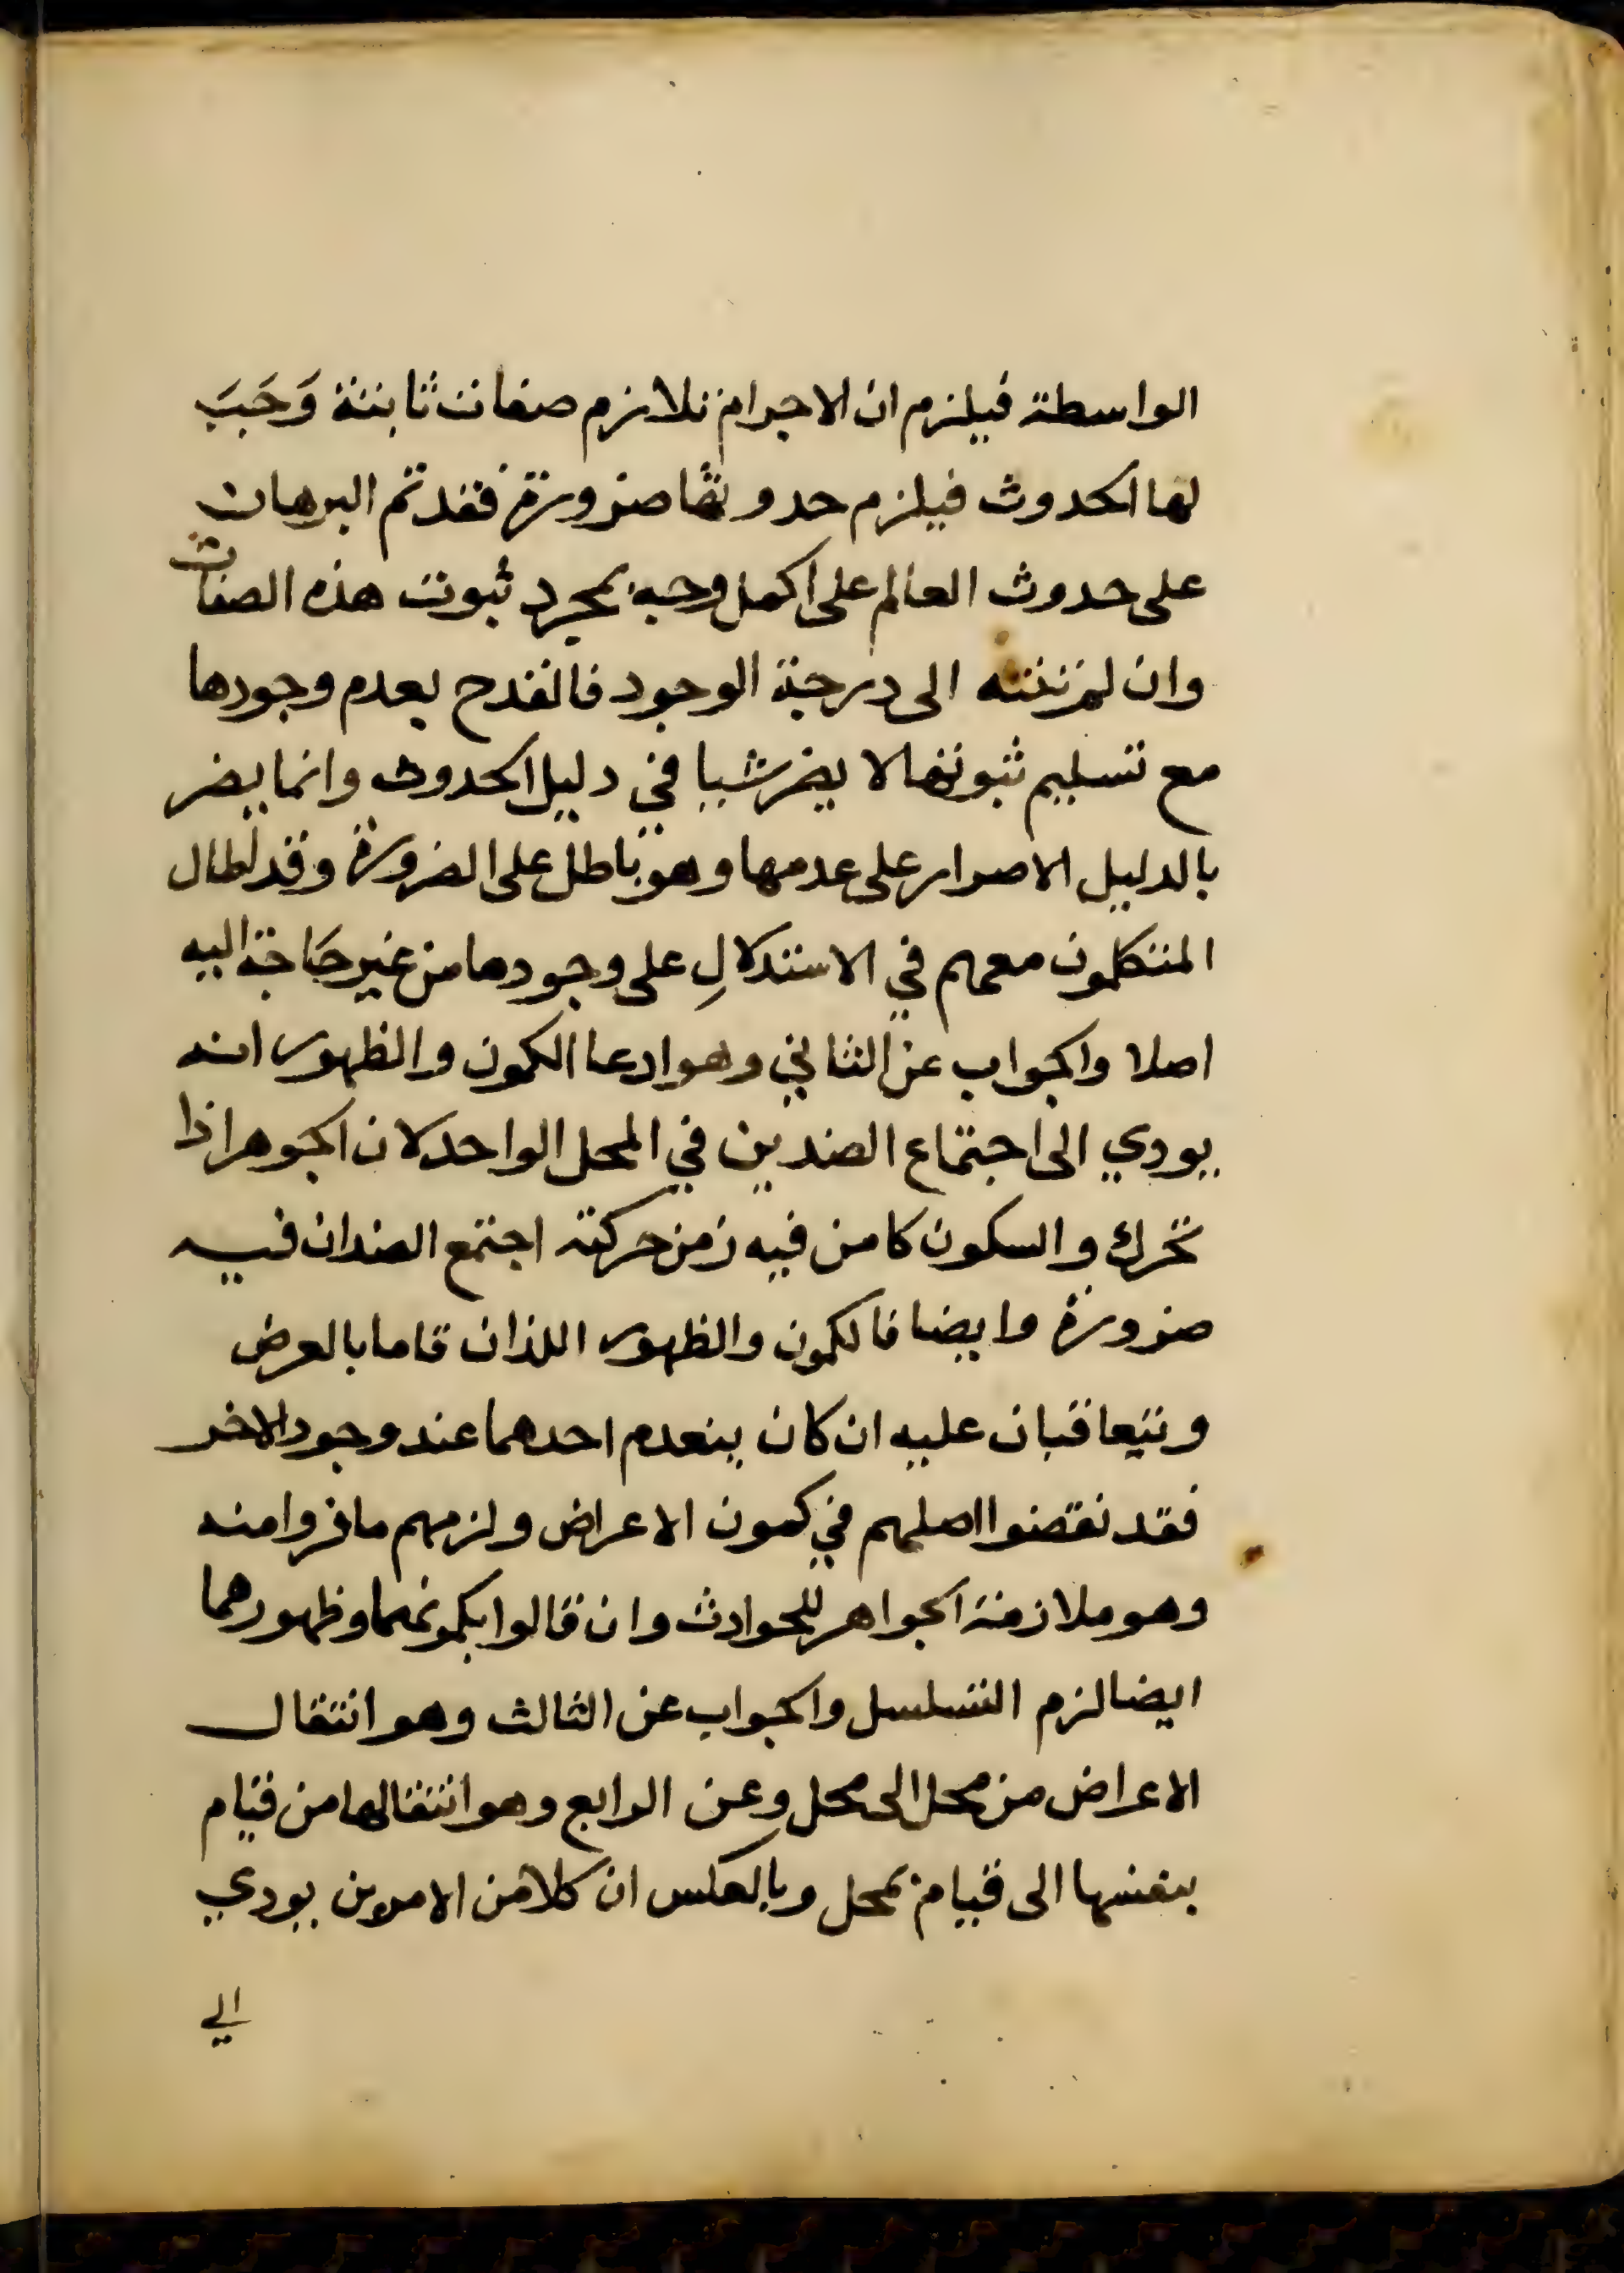 الواسطة فيلزم ان الاجرام تلازم صفات ثابتة وَجَبَ
لها الحدوث فيلزم حدوثها ضرورة فقد تم البرهان
على حدوث العالم على اكمل وجه بمجرد ثبوت هذه الصفات
وان لم تنته الى درجة الوجود فالقدح بعدم وجودها
مع تسليم ثبوتها لا يضر شيا في دليل الحدوث وانما يضر
بالدليل الاصرار على عدمها وهو باطل على الضرورة وقد اطال
المتكلمون معهم في الاستدلالِ على وجودها من غير حَاجة اليه
اصلا والجواب عن الثاني وهو ادعا الكمون والظهور انه
يودي الى اجتماع الضدين في المحل الواحد لان الجوهر اذا
تحرك والسكون كامن فيه زمن حركته اجتمع الضدان فيه
ضرورة وايضا فالكمون والظهور اللذان قاما بالعرض
ويتعاقبان عليه ان كان ينعدم احدهما عند وجود الاخر
فقد نقضوا اصلهم في كمون الاعراض ولزمهم ما فروا منه
وهو ملازمة الجواهر للحوادث وان قالوا بكمونهما وظهورهما
ايضا لزم التسلسل والجواب عن الثالث وهو انتقال
الاعراض من محل الى محل وعن الرابع وهو انتقالها من قيام
بنفسها الى قيام بمحل وبالعكس ان كلا من الامرين يودي
الي